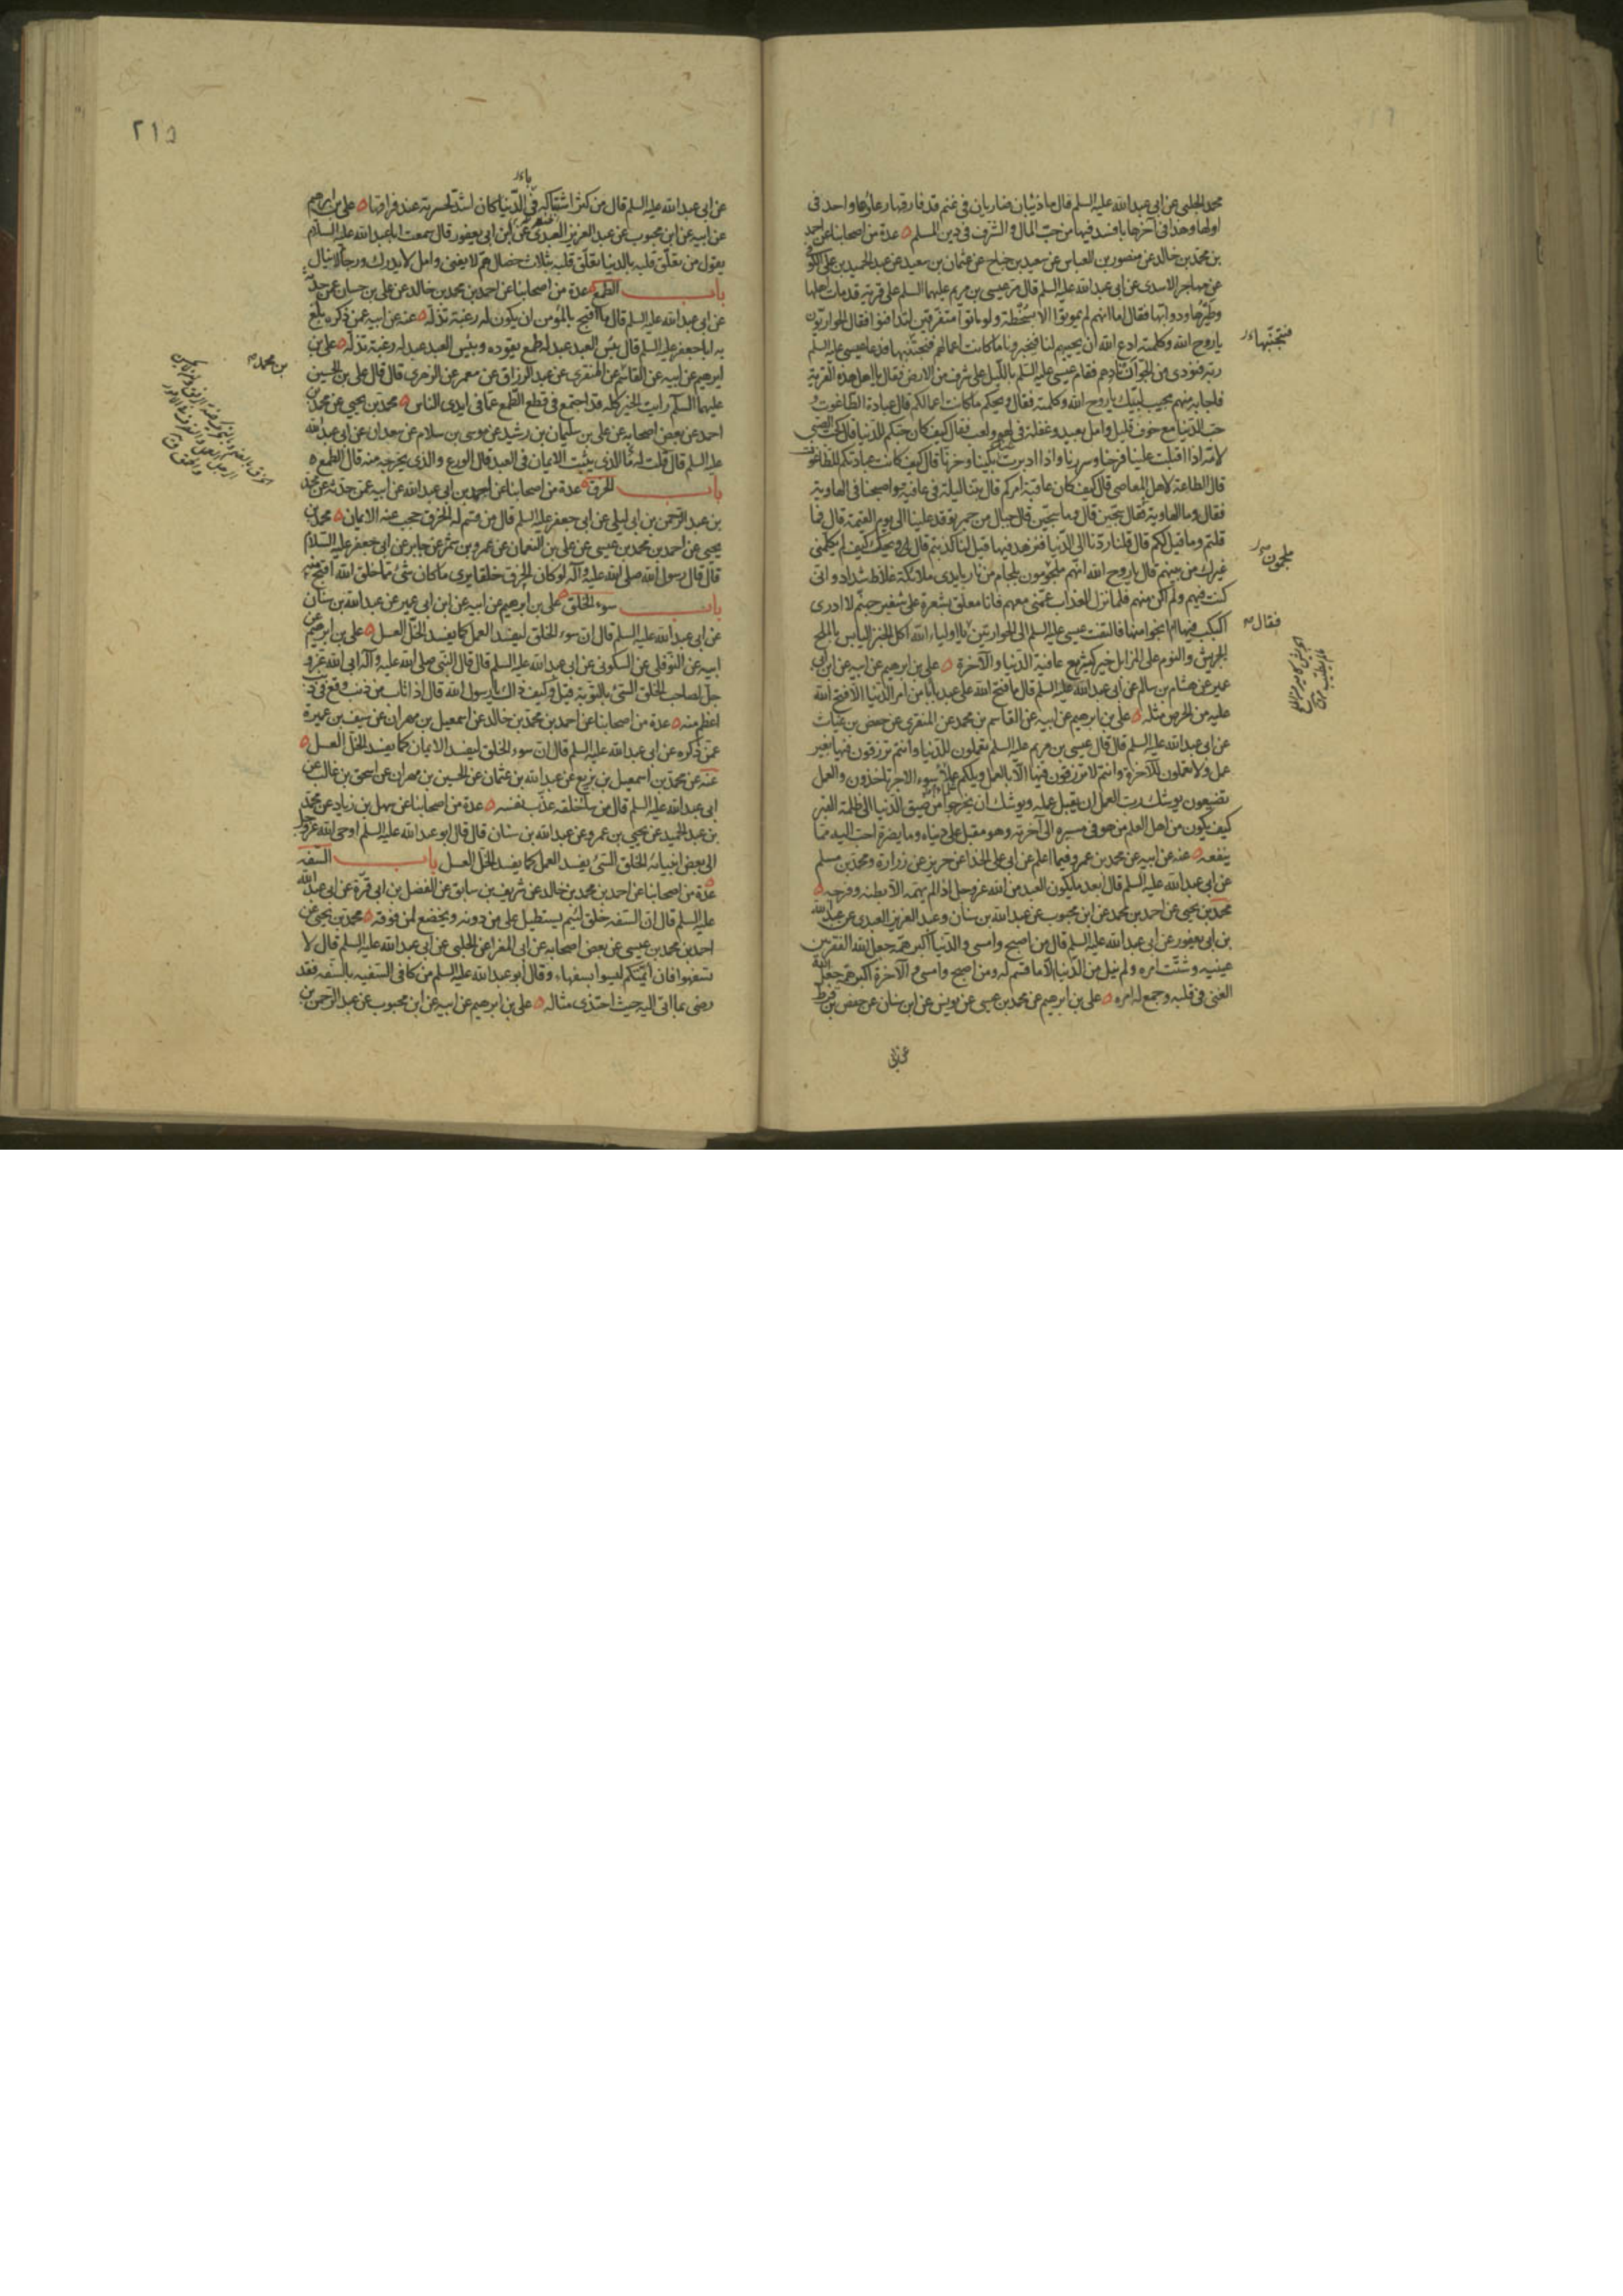 محمد الحلبى عن ابى عبد الله عليه السلم قال ما ذئبان ضاريان فى غنم قد فارقها رعاؤها واحد فى
اولها وهذا فى آخرها بافسد فيها من حب المال والشرف فى دين المسلم عدة من اصحابنا عن احمد
بن محمد بن خالد عن منصور بن العباس عن سعيد بن جناح عن عثمان بن سعيد عن عبد الحميد بن على الكوفى
عن مهاجر الاسدى عن ابى عبد الله عليه السلم قال مر عيسى بن مريم عليهما السلم على قرية قد مات اهلها
وطيرها ودوابها فقال اما انهم لم يموتوا الا بسخطة ولو ماتوا متفرقين لتدافنوا فقال الحواريون
يا روح الله وكلمته ادع الله ان يحييهم لنا فيخبرونا ما كانت اعمالهم فنجتنبها فدعا عيسى عليه السلم
فنجتنبها
ربه فنودى من الجو ان نادهم فقام عيسى عليه السلم بالليل على شرف من الارض فقال يا اهل هذه القرية
فاجابه منهم مجيب لبيك يا روح الله وكلمته فقال ويحكم ما كانت اعمالكم قال عبادة الطاغوت و
حب الدنيا مع خوف قليل وامل بعيد وغفلة فى لهو ولعب فقال كيف كان حبكم للدنيا قال كحب الصبى
لامه اذا اقبلت علينا فرحنا وسررنا واذا ادبرت بكينا وحزنا قال كيف كانت عبادتكم للطاغوت
قال الطاعة لاهل المعاصى قال كيف كان عاقبة امركم قال بتنا ليلة فى عافية واصبحنا فى الهاوية
فقال وما الهاوية فقال سجين قال وما سجين قال جبال من جمر توقد علينا الى يوم القيمة قال فما
قلتم وما قيل لكم قال قلنا ردنا الى الدنيا فنزهد فيها قيل لنا كذبتم قال ويحك كيف لم يكلمنى
ملجمون
غيرك من بينهم قال يا روح الله انهم ملجمون بلجام من نار بايدى ملائكة غلاظ شداد وانى
كنت فيهم ولم اكن منهم فلما نزل العذاب عمنى معهم فانا معلق بشعرة على شفير جهنم لا ادرى
فقال
اكبكب فيها ام انجو منها فالتفت عيسى عليه السلم الى الحواريين يا اولياء الله اكل الخبز اليابس بالملح
الجريش والنوم على المزابل خير كثير مع عافية الدنيا والآخرة على بن ابرهيم عن ابيه عن ابن ابى
عمير عن هشام بن سالم عن ابى عبد الله عليه السلم قال ما فتح الله على عبد بابا من امر الدنيا الا فتح الله
عليه من الحرص مثله على بن ابرهيم عن ابيه عن القاسم بن محمد عن المنقرى عن حفص بن غياث
عن ابى عبد الله عليه السلم قال قال عيسى بن مريم عليه السلم تعملون للدنيا وانتم ترزقون فيها بغير
عمل ولا تعملون للآخرة وانتم لا ترزقون فيها الا بالعمل ويلكم علماء سوء الاجر تاخذون والعمل
تضيعون يوشك رب العمل ان يقبل عمله ويوشك ان يخرجوا من ضيق الدنيا الى ظلمة القبر
كيف يكون من اهل العلم من هو فى مسيره الى آخرته وهو مقبل على دنياه وما يضره احب اليه مما
ينفعه عنه عن ابيه عن محمد بن عمرو فيما اعلم عن ابى على الحذا عن حريز عن زرارة ومحمد بن مسلم
عن ابى عبد الله عليه السلم قال ابعد ما يكون العبد من الله عز وجل اذا لم يهمه الا بطنه وفرجه
محمد بن يحيى عن احمد بن محمد عن ابن محبوب عن عبد الله بن سنان وعبد العزيز العبدى عن عبد الله
بن ابى يعفور عن ابى عبد الله عليه السلم قال من اصبح وامسى والدنيا اكبر همه جعل الله الفقر بين
عينيه وشتت امره ولم ينل من الدنيا الا ما قسم له ومن اصبح وامسى والآخرة اكبر همه جعل الله
الغنى فى قلبه وجمع له امره على بن ابرهيم عن محمد بن عيسى عن يونس عن ابن سنان عن حفص بن قرط
عن ابى
٢١٥
عن ابى عبد الله عليه السلم قال من كثر اشتباكه فى الدنيا كان اشد لحسرته عند فراقها على بن ابرهيم
عن ابيه عن ابن محبوب عن عبد العزيز العبدى عن ابن ابى يعفور قال سمعت ابا عبد الله عليه السلام
يقول من تعلق قلبه بالدنيا تعلق قلبه بثلاث خصال هم لا يفنى وامل لا يدرك ورجاء لا ينال
باب الطمع عدة من اصحابنا عن احمد بن محمد بن خالد عن على بن حسان عمن حدثه
عن ابى عبد الله عليه السلم قال ما اقبح بالمؤمن ان يكون له رغبة تذله عنه عن ابيه عمن ذكره بلغ
به ابا جعفر عليه السلم قال بئس العبد عبد له طمع يقوده وبئس العبد عبد له رغبة تذله على بن
بن محمد
ابرهيم عن ابيه عن القاسم عن المنقرى عن عبد الرزاق عن معمر عن الزهرى قال قال على بن الحسين
عليهما السلم رايت الخير كله قد اجتمع فى قطع الطمع عما فى ايدى الناس محمد بن يحيى عن محمد بن
احمد عن بعض اصحابه عن على بن سليمان بن رشيد عن موسى بن سلام عن سعدان عن ابى عبد الله
عليه السلم قال قلت له ما الذى يثبت الايمان فى العبد قال الورع والذى يخرجه منه قال الطمع
باب الخرق عدة من اصحابنا عن احمد بن ابى عبد الله عن ابيه عمن حدثه عن محمد
بن عبد الرحمن بن ابى ليلى عن ابى جعفر عليه السلم قال من قسم له الخرق حجب عنه الايمان محمد بن
يحيى عن احمد بن محمد بن عيسى عن على بن النعمان عن عمرو بن شمر عن جابر عن ابى جعفر عليه السلام
قال قال رسول الله صلى الله عليه وآله لو كان الخرق خلقا يرى ما كان شئ مما خلق الله اقبح منه
باب سوء الخلق على بن ابرهيم عن ابيه عن ابن ابى عمير عن عبد الله بن سنان
عن ابى عبد الله عليه السلم قال ان سوء الخلق ليفسد العمل كما يفسد الخل العسل على بن ابرهيم عن
ابيه عن النوفلى عن السكونى عن ابى عبد الله عليه السلم قال قال النبى صلى الله عليه وآله ابى الله عز و
جل لصاحب الخلق السيئ بالتوبة قيل وكيف ذاك يا رسول الله قال اذا تاب من ذنب وقع فى ذنب
اعظم منه عدة من اصحابنا عن احمد بن محمد بن خالد عن اسمعيل بن مهران عن سيف بن عميرة
عمن ذكره عن ابى عبد الله عليه السلم قال ان سوء الخلق ليفسد الايمان كما يفسد الخل العسل
عنه عن محمد بن اسمعيل بن بزيع عن عبد الله بن عثمان عن الحسين بن مهران عن اسحق بن غالب عن
ابى عبد الله عليه السلم قال من ساء خلقه عذب نفسه عدة من اصحابنا عن سهل بن زياد عن محمد
بن عبد الحميد عن يحيى بن عمرو عن عبد الله بن سنان قال قال ابو عبد الله عليه السلم اوحى الله عز وجل
الى بعض انبيائه الخلق السيئ يفسد العمل كما يفسد الخل العسل باب السفه
عدة من اصحابنا عن احمد بن محمد بن خالد عن شريف بن سابق عن الفضل بن ابى قرة عن ابى عبد الله
عليه السلم قال ان السفه خلق لئيم يستطيل على من دونه ويخضع لمن فوقه محمد بن يحيى عن
احمد بن محمد بن عيسى عن بعض اصحابه عن ابى المغرا عن الحلبى عن ابى عبد الله عليه السلم قال لا
تسفهوا فان ائمتكم ليسوا بسفهاء وقال ابو عبد الله عليه السلم من كافى السفيه بالسفه فقد
رضى بما اتى اليه حيث احتذى مثاله على بن ابرهيم عن ابيه عن ابن محبوب عن عبد الرحمن بن